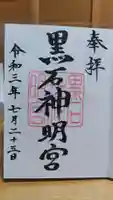 奉拝
黒石神明宮
令和三年七月二十三日